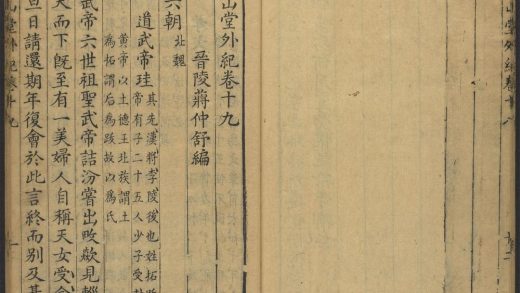 山堂外紀卷十八
山堂外紀卷十九
晉陵蔣仲舒編
六朝 北魏
道武帝珪 其先漢將李陵後也姓拓
帝有子二十五人少子受封
黃帝以土德王北族謂土
為拓謂后為跋故以為氏
武帝六世祖聖武帝詰汾嘗出畋歘見輜
天而下既至有一美婦人自稱天女受命
旦日請還期年復會於此言終而別及其
山堂外紀卷十九
一